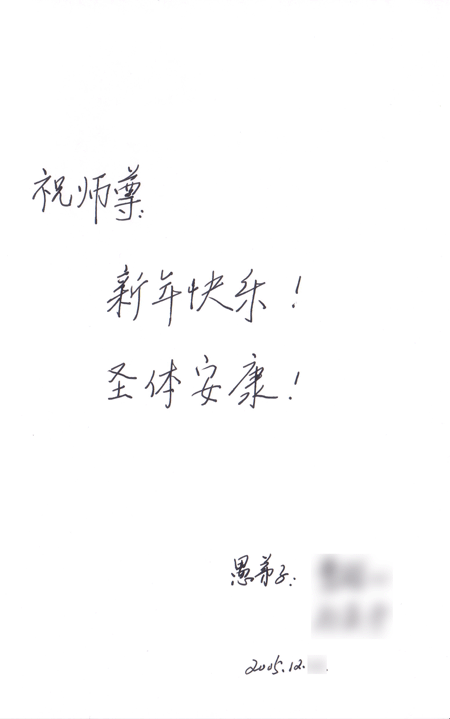 祝师尊:
新年快乐！
圣体安康！
愚弟子:
2005.12.